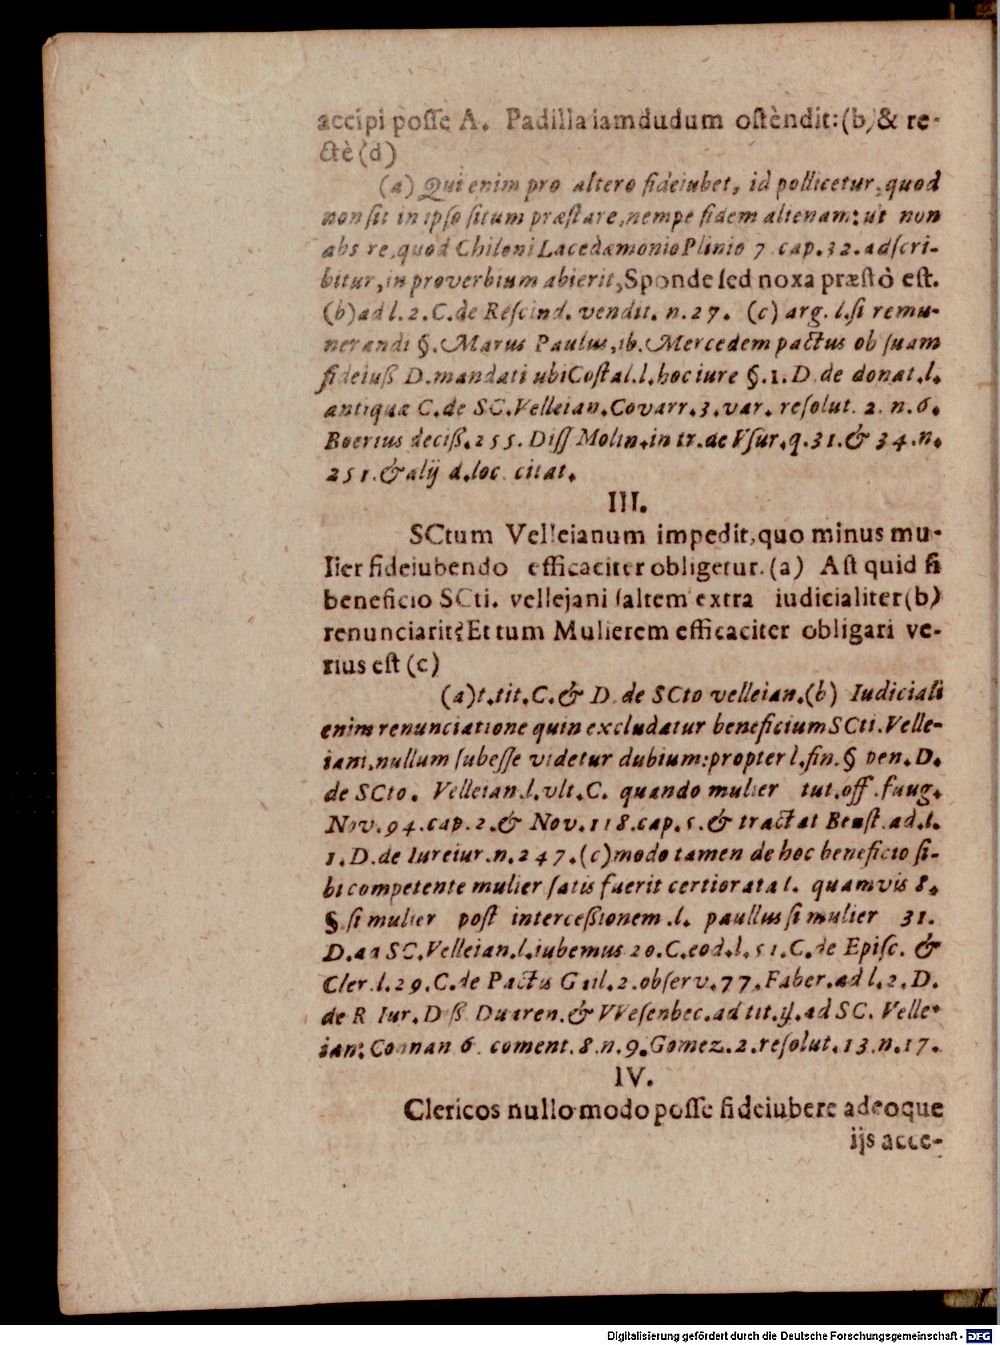 accipi posse A. Padilla iamdudum ostèndit:(b)& re-
ctè(d)
(a) Qui enim pro altero fideiubet, id pollicetur, quod
non sit in ipso situm præstare, nempe fidem alienam: ut non
abs re, quod Chiloni Lacedæmonio Plinio 7 cap.32. adscri-
bitur, in proverbium abierit, Sponde sed noxa præstò est.
(b) ad l. 2. C. de Rescind. vendit. n. 27. (c) arg. l. si remu-
nerandi §. Marus Paulus, ib. Mercedem pactus ob suam
fideiuß D. mandati ubi Costal. l. hoc iure §. 1. D de donat. l.
antiquæ C. de SC. Velleian. Covarr. 3. var. resolut. 2. n. 6.
Boerius deciß. 255. Diss Molin. in tr. de Vsur. q. 31. & 34. n.
251. & alij d. loc. citat.
III.
SCtum Velleianum impedit, quo minus mu-
lier fideiubendo efficaciter obligetur. (a) Ast quid si
beneficio SCti. vellejani saltem extra iudicialiter(b)
renunciarit? Et tum Mulierem efficaciter obligari ve-
rius est (c)
(a) t. tit. C. & D. de SCto velleian. (b) Iudiciali
enim renunciatione quin excludatur beneficium SCti. Velle-
iani, nullum subesse videtur dubium: propter l. fin. § pen. D.
de SCto. Velleian. l. vlt. C. quando mulier tut. off. fung.
Nov. 94. cap. 2. & Nov. 118. cap. 5. & tractat Beust. ad. l.
1. D. de Iureiur. n. 247. (c) modo tamen de hoc beneficio si-
bi competente mulier satis fuerit certiorata l. quamvis 8.
§. si mulier post intercessionem. l. paullus si mulier 31.
D. ad SC. Velleian. l. iubemus 20. C. eod. l. 51. C. de Episc. &
Cler. l. 29. C. de Pactis Gail. 2. observ. 77. Faber. ad l. 2. D.
de R Iur. D ß Duaren. & VVesenbec. ad tit. ij. ad SC. Velle-
ian: Connan 6. coment. 8. n. 9. Gomez. 2. resolut. 13. n. 17.
IV.
Clericos nullo modo posse fideiubere adeoque
ijs acce-
Digitalisierung gefördert durch die Deutsche Forschungsgemeinschaft - DFG